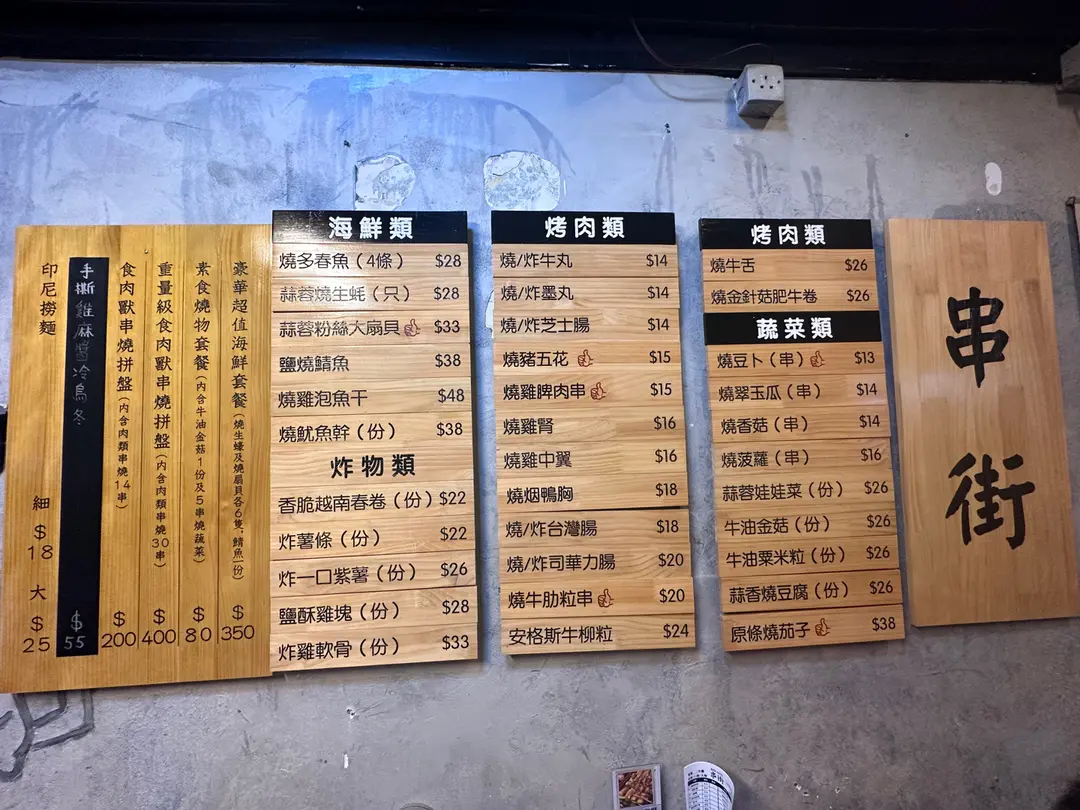 印尼撈麵 細$18 大$25
手撕雞麻醬冷烏冬 $55
食肉獸串燒拼盤(內含肉類串燒14串) $200
重量級食肉獸串燒拼盤(內含肉類串燒30串) $400
素食燒物套餐(內含牛油金菇1份及5串燒蔬菜) $80
豪華超值海鮮套餐(燒生蠔及燒扇貝各6隻,鯖魚一份) $350
海鮮類
燒多春魚(4條) $28
蒜蓉燒生蚝(只) $28
蒜蓉粉絲大扇貝 $33
鹽燒鯖魚 $38
燒雞泡魚干 $48
燒魷魚幹(份) $38
炸物類
香脆越南春卷(份) $22
炸薯條(份) $22
炸一口紫薯(份) $26
鹽酥雞塊(份) $28
炸雞軟骨(份) $33
烤肉類
燒/炸牛丸 $14
燒/炸墨丸 $14
燒/炸芝士腸 $14
燒豬五花 $15
燒雞脾肉串 $15
燒雞腎 $16
燒雞中翼 $16
燒烟鴨胸 $18
燒/炸台灣腸 $18
燒/炸司華力腸 $20
燒牛肋粒串 $20
安格斯牛柳粒 $24
烤肉類
燒牛舌 $26
燒金針菇肥牛卷 $26
蔬菜類
燒豆卜(串) $13
燒翠玉瓜(串) $14
燒香菇(串) $14
燒菠蘿(串) $16
蒜蓉娃娃菜(份) $26
牛油金菇(份) $26
牛油粟米粒(份) $26
蒜香燒豆腐(份) $26
原條燒茄子 $38
串街